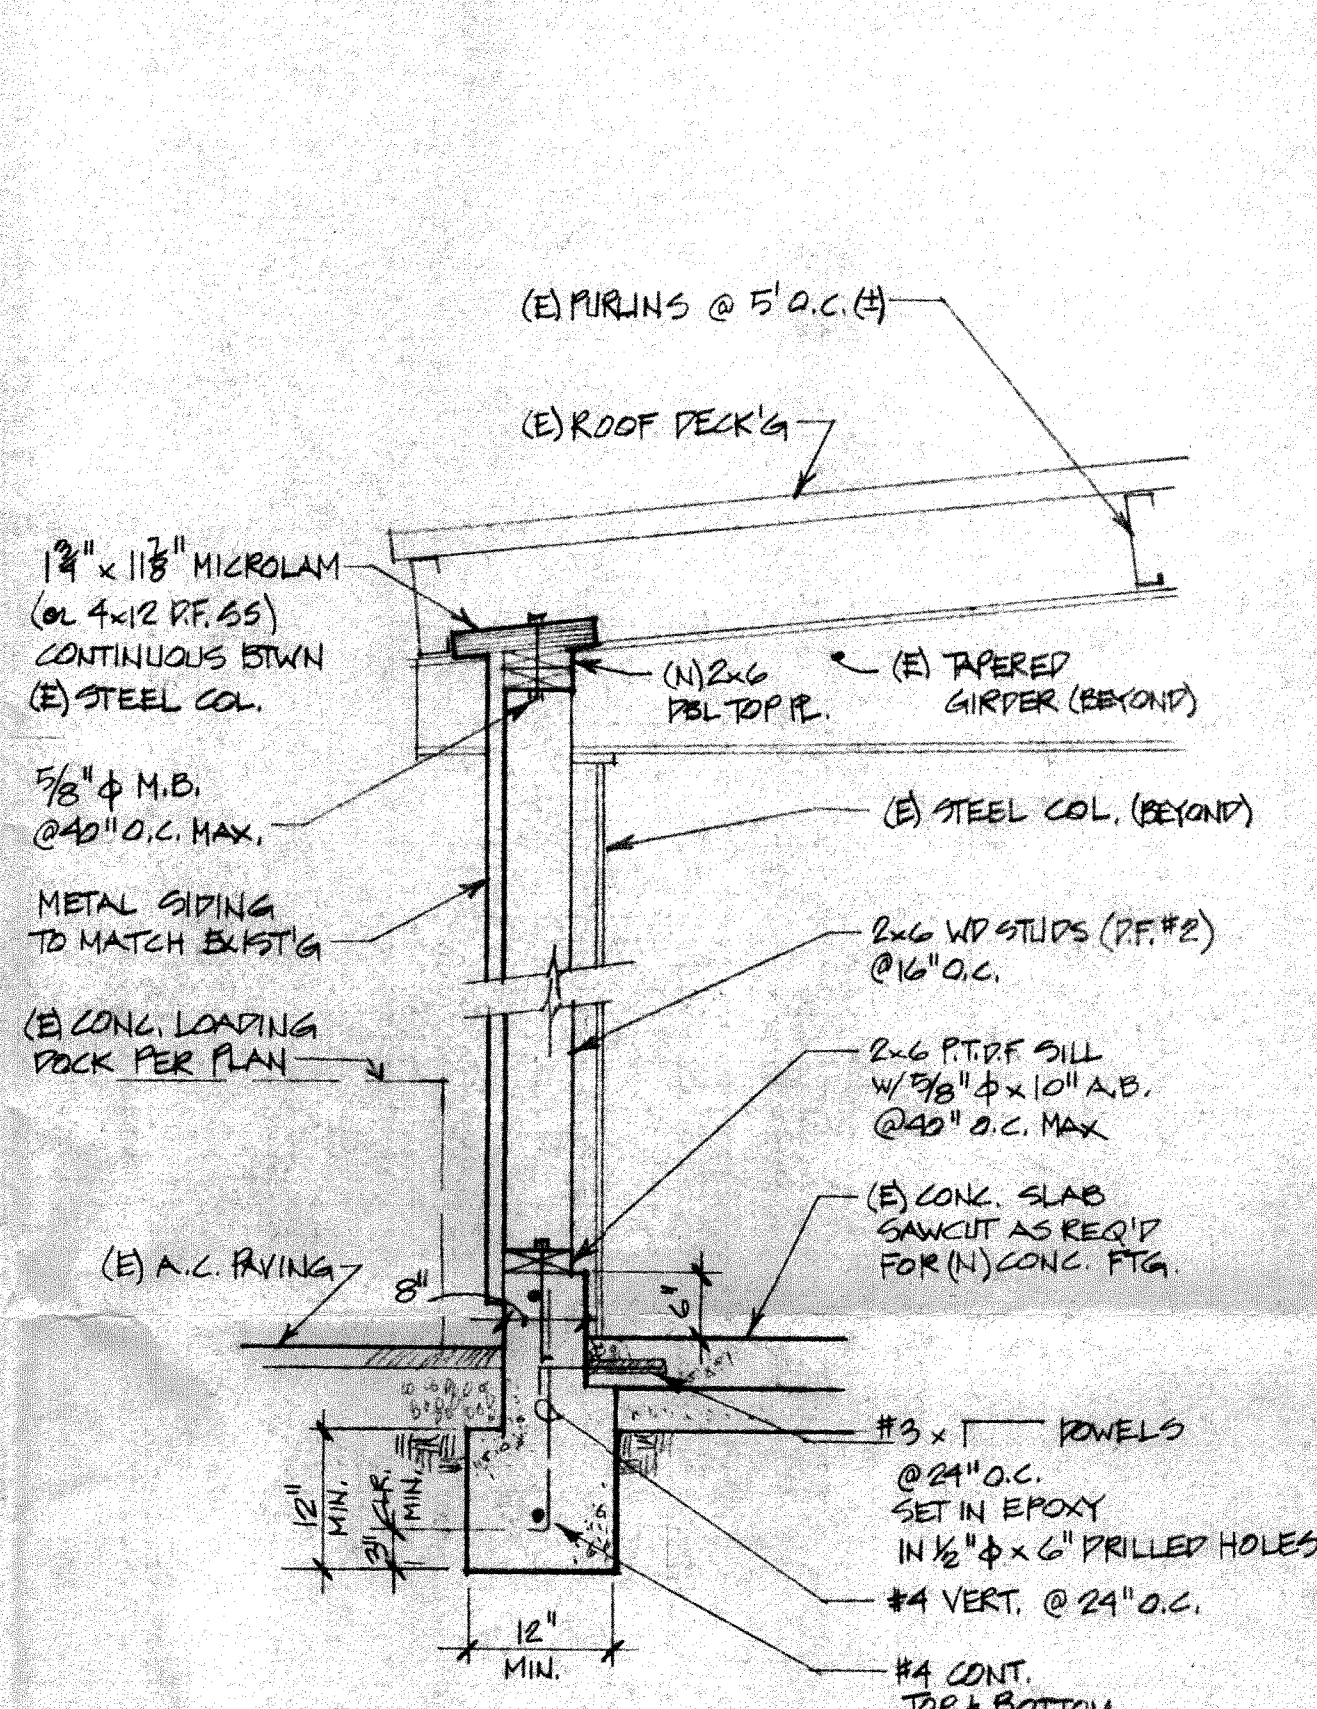 (E) PURLINS @ 5' O.C. (±)
(E) ROOF DECK'G
1 3/4" x 11 7/8" MICROLAM
(or 4x12 D.F. SS)
CONTINUOUS BTWN
(E) STEEL COL.
(N) 2x6
DBL TOP PL.
(E) TAPERED
GIRDER (BEYOND)
5/8" ϕ M.B.
@40" O.C. MAX.
(E) STEEL COL. (BEYOND)
METAL SIDING
TO MATCH EXIST'G
2x6 WD STUDS (D.F. #2)
@16" O.C.
(E) CONC. LOADING
DOCK PER PLAN
2x6 P.T.D.F SILL
W/ 5/8" ϕ x 10" A.B.
@40" O.C. MAX
(E) CONC. SLAB
SAWCUT AS REQ'D
FOR (N) CONC. FTG.
(E) A.C. PAVING
8"
6"
#3 x DOWELS
@24" O.C.
SET IN EPOXY
IN 1/2" ϕ x 6" DRILLED HOLES
12"
MIN.
3" CLR.
MIN.
#4 VERT. @ 24" O.C.
12"
MIN.
#4 CONT.
TOP & BOTTOM